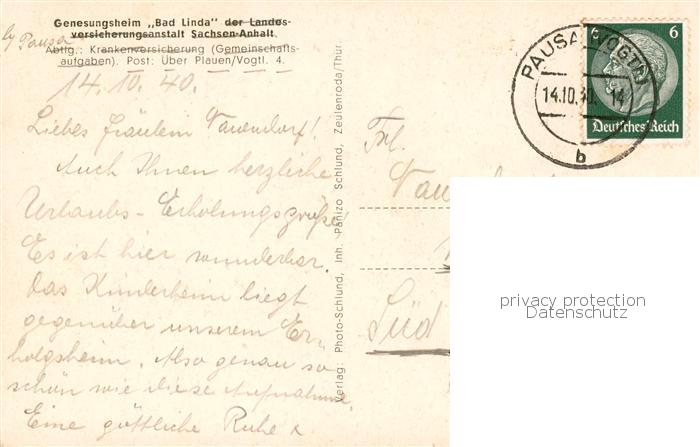 Genesungsheim „Bad Linda" der Landes-
versicherungsanstalt Sachsen-Anhalt
by Pausa
Abtlg.: Krankenversicherung (Gemeinschafts-
aufgaben). Post: Über Plauen/Vogtl. 4.
14. 10. 40.
Liebes Fräulein Tauendorf!
Auch Ihnen herzliche
Urlaubs-Erholungsgrüße,
Es ist hier wunderbar.
Das Kinderheim liegt
gegenüber unserem Er-
holgsheim. Also genau so
schön wie diese Aufnahme.
Eine göttliche Ruhe
Verlag: Photo-Schlund, Inh. Panizo Schlund, Zeulenroda/Thür.
PAUSA (VOGTL)
14.10.40. 14
b
6 6
Deutsches Reich
Frl.
Süd
privacy protection
Datenschutz